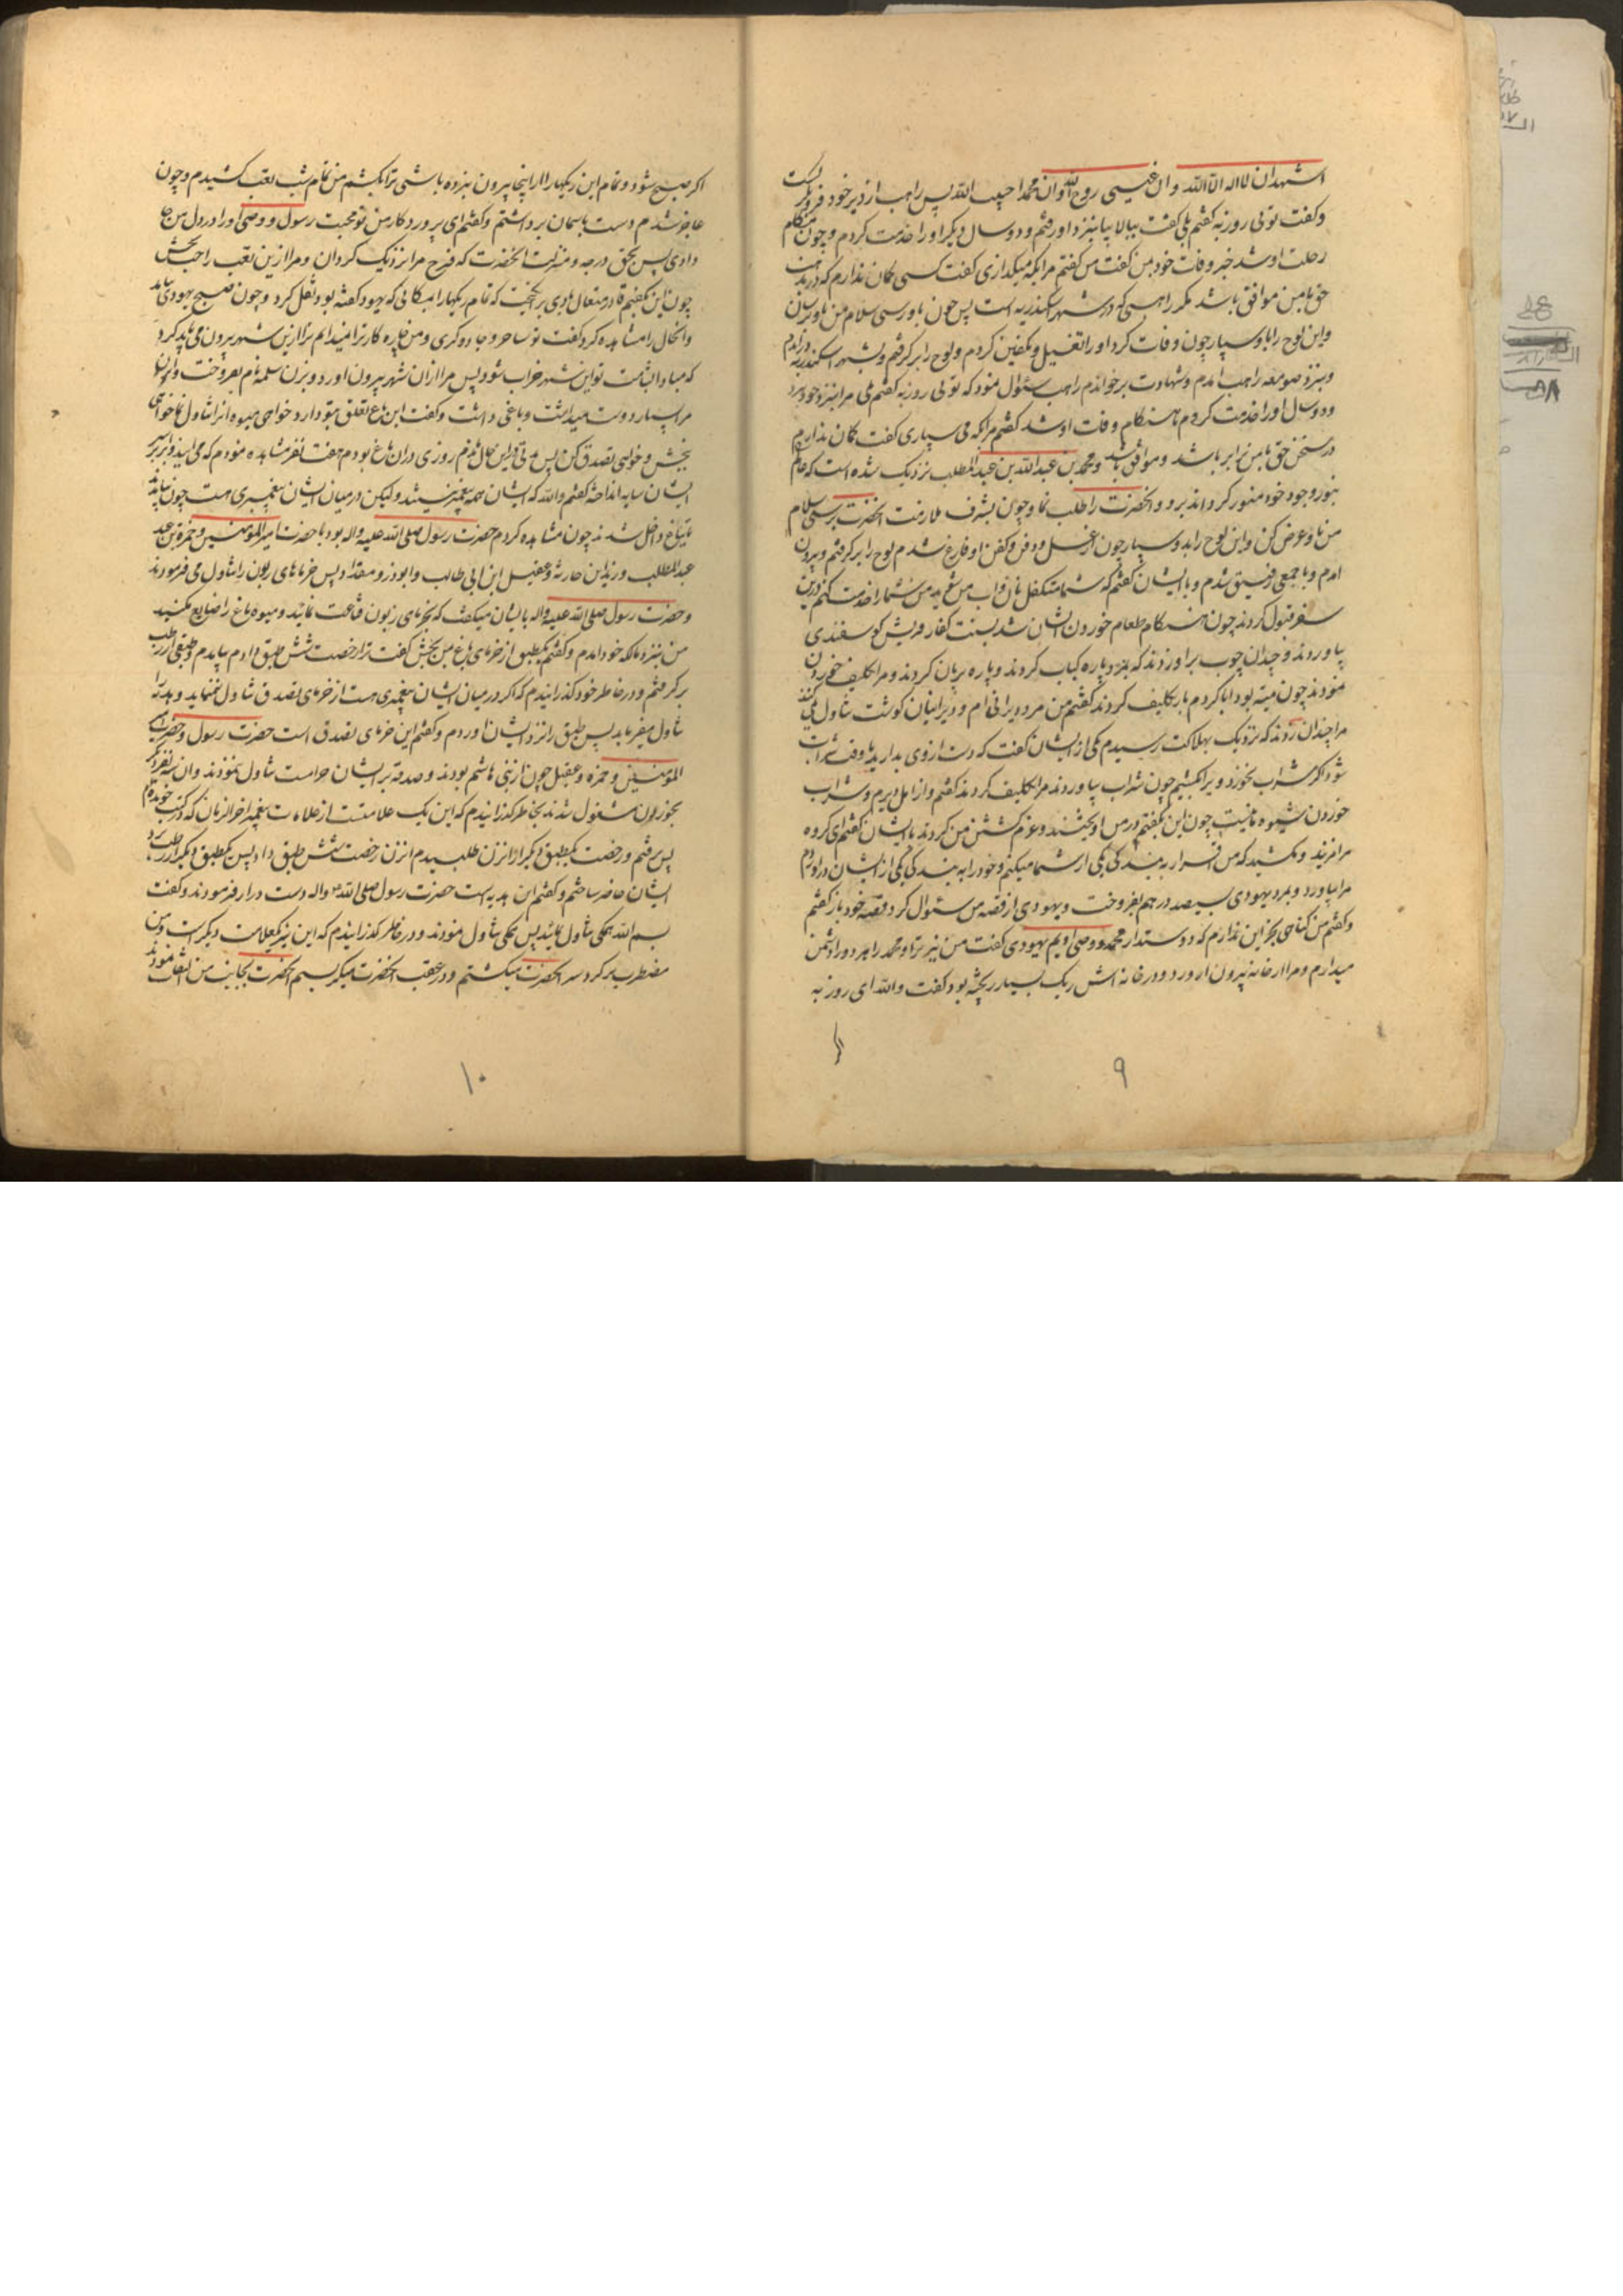 اشهد ان لا اله الا الله و ان عیسی روح الله و ان محمدا حبیب الله پس راهب از دیر خود فرو نگریست
و گفت توئی روزبه گفتم بلی گفت ببالا بیا بنزد او رفتم و دو سال دیگر او را خدمت کردم و چون هنگام
رحلت او شد خبر وفات خود بمن گفت من گفتم مرا بکه میگذاری گفت کسی گمان ندارم که در مذهب
حق با من موافق باشد مگر راهبی که در شهر اسکندریه است پس چون باو رسی سلام من باو برسان
و این لوح را باو سپار چون وفات کرد او را تغسیل و تکفین کردم و لوح را برگرفتم و بشهر اسکندریه در آمدم
و بنزد صومعه راهب امدم و شهادت بر خواندم راهب سئوال نمود که توئی روزبه گفتم بلی مرا بنزد خود برد
و دو سال او را خدمت کردم تا هنگام وفات او شد گفتم مرا بکه می سپاری گفت گمان ندارم
در سخن حق با من برابر باشد و موافق باشد و محمد بن عبدالله بن عبدالمطلب نزدیک شده است که عالم
بنور وجود خود منور گرداند برو و انحضرت را طلب نما و چون بشرف ملازمت انحضرت برسی سلام
من باو عرض کن و این لوح را بدو سپار چون از غسل و دفن و کفن او فارغ شدم لوح را برگرفتم و بیرون
امدم و با جمعی رفیق شدم و با ایشان گفتم که شما متکفل نان و اب من شوید من شما را خدمت کنم درین
سفر قبول کردند چون هنگام طعام خوردن ایشان شد بسنت کفار قریش گوسفندی
بیاوردند و چندان چوب بر او زدند که بمرد و پاره کباب کردند و پاره بریان کردند و مرا تکلیف خوردن
نمودند چون میته بود ابا کردم باز تکلیف کردند گفتم من مرد دیرانی ام و دیرانیان گوشت تناول نمی کنند
مرا چندان زدند که نزدیک بهلاکت رسیدم یکی از ایشان گفت که دست از وی بدارید تا وقت شراب
شود اگر شراب نخورد ویرا بکشیم چون شراب بیاوردند مرا تکلیف کردند گفتم من از اهل دیرم و شراب
خوردن شیوه ما نیست چون این بگفتم در من اویختند و عزم کشتن من کردند با ایشان گفتم ای گروه
مرا مزنید و مکشید که من اقرار به بندگی یکی از شما میکنم و خود را به بندگی یکی از ایشان در اوردم
مرا بیاورد و بمرد یهودی بسیصد درهم بفروخت و یهودی از قصه من سئوال کرد قصه خود باز گفتم
و گفتم من گناهی بجز این ندارم که دوستدار محمد و وصی اویم یهودی گفت من نیز ترا و محمد را هر دو را دشمن
میدارم و مرا از خانه بیرون اورد و در خانه اش ریک بسیار ریخته بود گفت والله ای روزبه
۹
اگر صبح شود و تمام این ریکها را از اینجا بیرون نبرده باشی ترا بکشم من تمام شب تعب کشیدم و چون
عاجز شدم دست باسمان برداشتم و گفتم ای پروردگار من تو محبت رسول و وصی او را در دل من جا
دادی پس بحق درجه و منزلت انحضرت که فرج مرا نزدیک گردان و مرا ازین تعب راحت بخش
چون این بگفتم قادر متعال بادی بر انگیخت که تمام ریکها را بمکانی که یهود گفته بود نقل کرد و چون صبح یهودی بیامد
و انحال را مشاهده کرد گفت تو ساحر و جادوگری و من چاره کار ترا نمیدانم ترا ازین شهر بیرون می باید کرد
که مبادا بشامت تو این شهر خراب شود پس مرا از ان شهر بیرون اورد و بزن سلمه نام بفروخت و ان زن
مرا بسیار دوست میداشت و باغی داشت و گفت این باغ تعلق بتو دارد خواهی میوه انرا تناول نما خواهی
ببخش و خواهی تصدق کن پس مدتی در این حال ماندم روزی در ان باغ بودم هفت نفر مشاهده نمودم که می ایند و ابر بر سر
ایشان سایه انداخته گفتم والله که ایشان همه پیغمبر نیستند ولیکن در میان ایشان پیغمبری هست چون بیامدند
تا بباغ داخل شدند چون مشاهده کردم حضرت رسول صلی الله علیه واله بود با حضرت امیر المؤمنین و حمزة بن عبد
عبد المطلب و زید ابن حارثه و عقیل ابن ابی طالب و ابوذر و مقداد پس خرماهای زبون را تناول می فرمودند
و حضرت رسول صلی الله علیه واله با ایشان میگفت که بخرمای زبون قناعت نمائید و میوه باغ را ضایع مکنید
من بنزد مالکه خود امدم و گفتم یکطبق از خرمای باغ بمن ببخش گفت ترا رخصت شش طبق دادم بیامدم و طبقی از رطب
برگرفتم و در خاطر خود گذرانیدم که اگر در میان ایشان پیغمبری هست از خرمای تصدق تناول نمینماید و هدیه را
تناول میفرماید پس طبق را نزد ایشان اوردم و گفتم این خرمای تصدق است حضرت رسول و حضرت امیر
المؤمنین و حمزه و عقیل چون از بنی هاشم بودند و صدقه بر ایشان حرامست تناول ننمودند و ان سه نفر دیگر
بخوردن مشغول شدند بخاطر گذرانیدم که این یک علامتست از علامات پیغمبر اخر الزمان که در کتب خوانده ام
پس رفتم و رخصت یکطبق دیگر از ان زن طلبیدم ان زن رخصت شش طبق داد پس یکطبق دیگر از رطب نزد
ایشان حاضر ساختم و گفتم این هدیه است حضرت رسول صلی الله علیه واله دست دراز فرمودند و گفت
بسم الله همگی تناول نمائید پس همگی تناول نمودند و در خاطر گذرانیدم که این نیز یک علامت دیگر است و من
مضطرب بر گرد سر انحضرت میگشتم و در عقب انحضرت مینگریستم انحضرت بجانب من التفات نمودند
۱۰